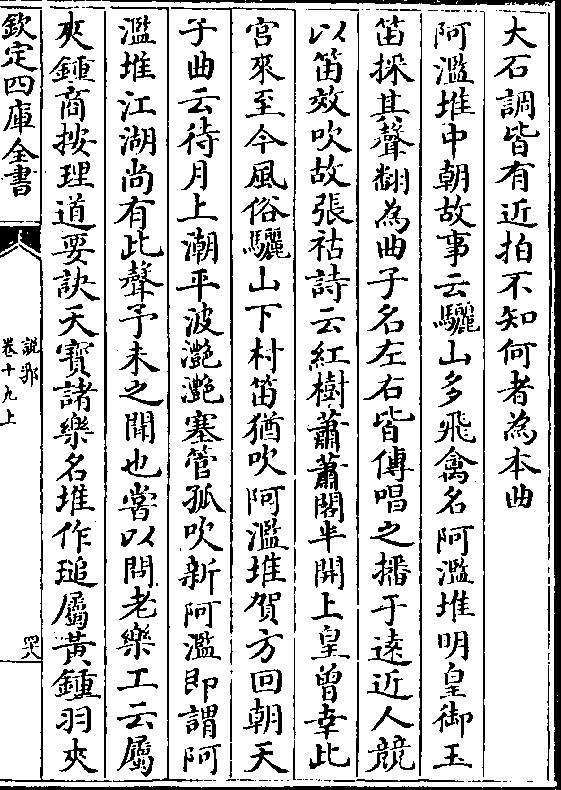 大石調皆有近拍不知何者為本曲
阿濫堆中朝故事云驪山多飛禽名阿濫堆明皇御玉
笛採其聲翻為曲子名左右皆傳唱之播于遠近人競
以笛效吹故張祜詩云紅樹蕭蕭閣半開上皇曾幸此
宮來至今風俗驪山下村笛猶吹阿濫堆賀方回朝天
子曲云待月上潮平波灔灔塞管孤吹新阿濫即謂阿
濫堆江湖尚有此聲予未之聞也嘗以問老樂工云屬
夾鍾商按理道要訣天寶諸樂名堆作塠屬黃鍾羽夾
欽定四庫全書
說郛
卷十九上
罘